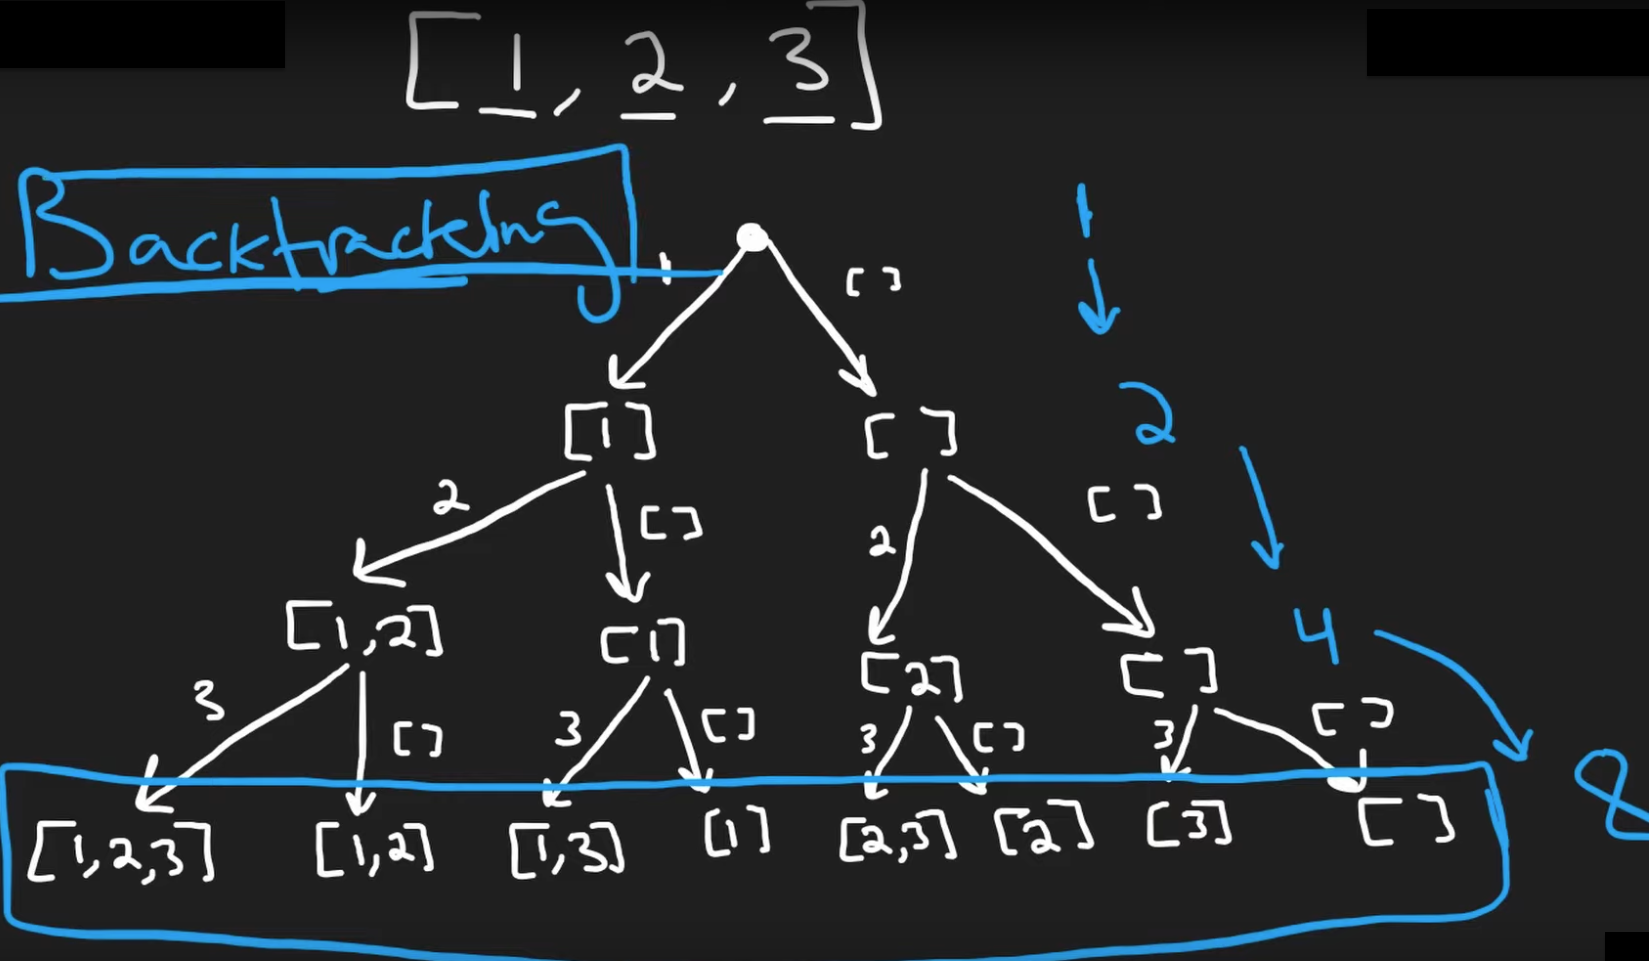 [1, 2, 3]
Backtracking
1
[ ]
1
[1]
[ ]
2
2
[ ]
2
[ ]
[1,2]
[1]
[2]
[ ]
4
3
[ ]
3
[ ]
3
[ ]
3
[ ]
8
[1,2,3]
[1,2]
[1,3]
[1]
[2,3]
[2]
[3]
[ ]